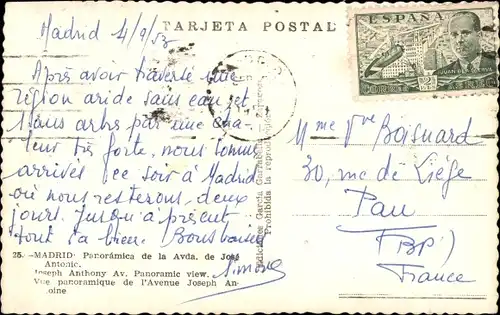 Madrid 4/9/53
TARJETA POSTAL
ESPAÑA
JUAN DE LA CIERVA
CORREO AEREO
Après avoir traversé une
région aride sans eau et
sans arbres par une cha-
leur très forte, nous sommes
arrivés ce soir à Madrid
où nous resterons deux
jours. Jusqu'à présent
tout va bien. Bons baisers
Simone
Mme Vve Boisnard
30, rue de Liége
Pau
(BP)
France
Ediciones García Garrabella
Prohibida la reproducción
25.—MADRID: Panorámica de la Avda. de José
Antonio.
Joseph Anthony Av. Panoramic view.
Vue panoramique de l'Avenue Joseph An-
toine